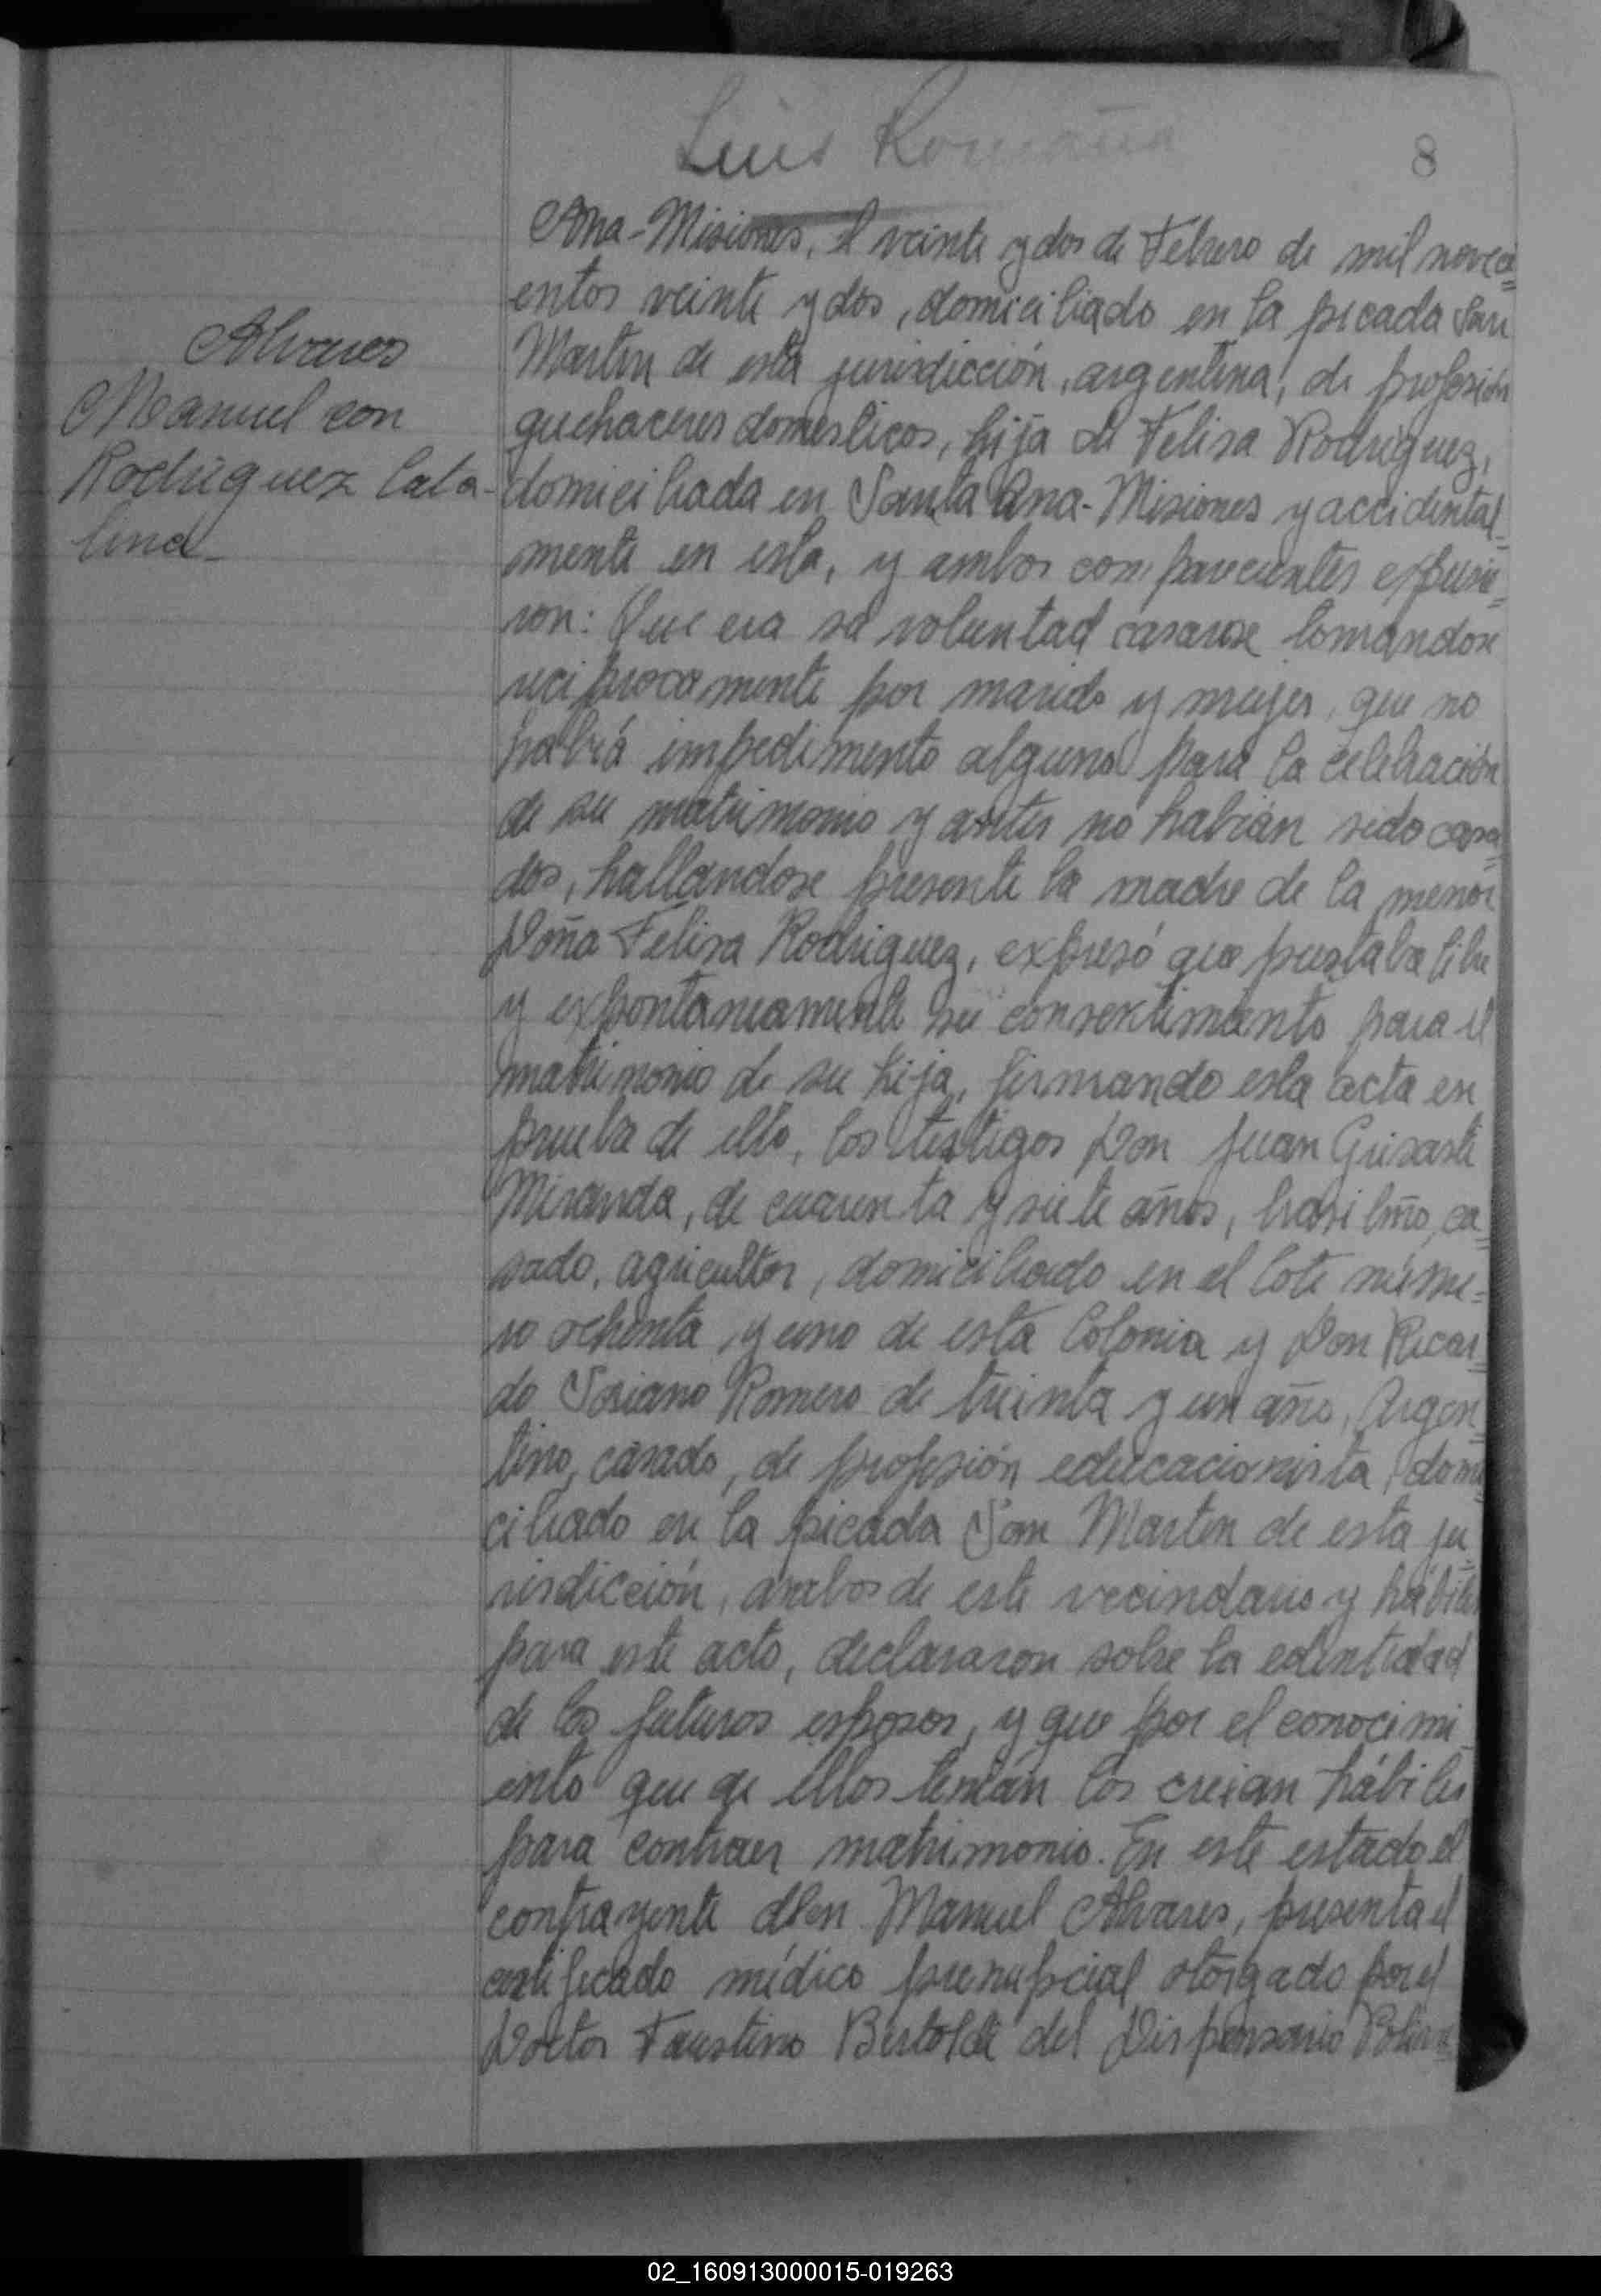 Luis Romaña
8
Alvares
Manuel con
Rodriguez Cata-
lina
Ana-Misiones, el veinte y dos de Febrero de mil noveci=
entos veinte y dos, domiciliado en la picada San
Martin de esta jurisdicción, argentina, de profesión
quehaceres domesticos, hija de Felisa Rodriguez,
domiciliada en Santa Ana-Misiones y accidental=
mente en esta, y ambos comparecientes expusie=
ron: Que era su voluntad casarse tomandose
reciprocamente por marido y mujer, que no
habiá impedimento alguno para la celebración
de su matrimonio y antes no habián sido casa=
dos, hallandose presente la madre de la menor
Doña Felisa Rodriguez, expresó que prestaba libre
y expontaneamente su consentimiento para el
matrimonio de su hija, firmando esta acta en
prueba de ello, los testigos Don Juan
Miranda, de cuarenta y siete años, brasilño, ca=
sado, agricultor, domiciliado en el lote núme=
ro ochenta y uno de esta Colonia y Don Ricar=
do Romero de treinta y un año, Argen=
tino, casado, de profesión educacionista, domi
ciliado en la picada San Martin de esta ju=
risdicción, ambos de este vecindario y hábiles
para este acto, declararon sobre la edentidad
de los futuros esposos, y que por el conocimi=
ento que de ellos tenián los creian hábiles
para contraer matrimonio. En este estado el
contrayente Manuel Alvares, presenta el
certificado médico prenupcial otorgado por el
Doctor Faustino Bertoldi del Dispensario
02_160913000015-019263